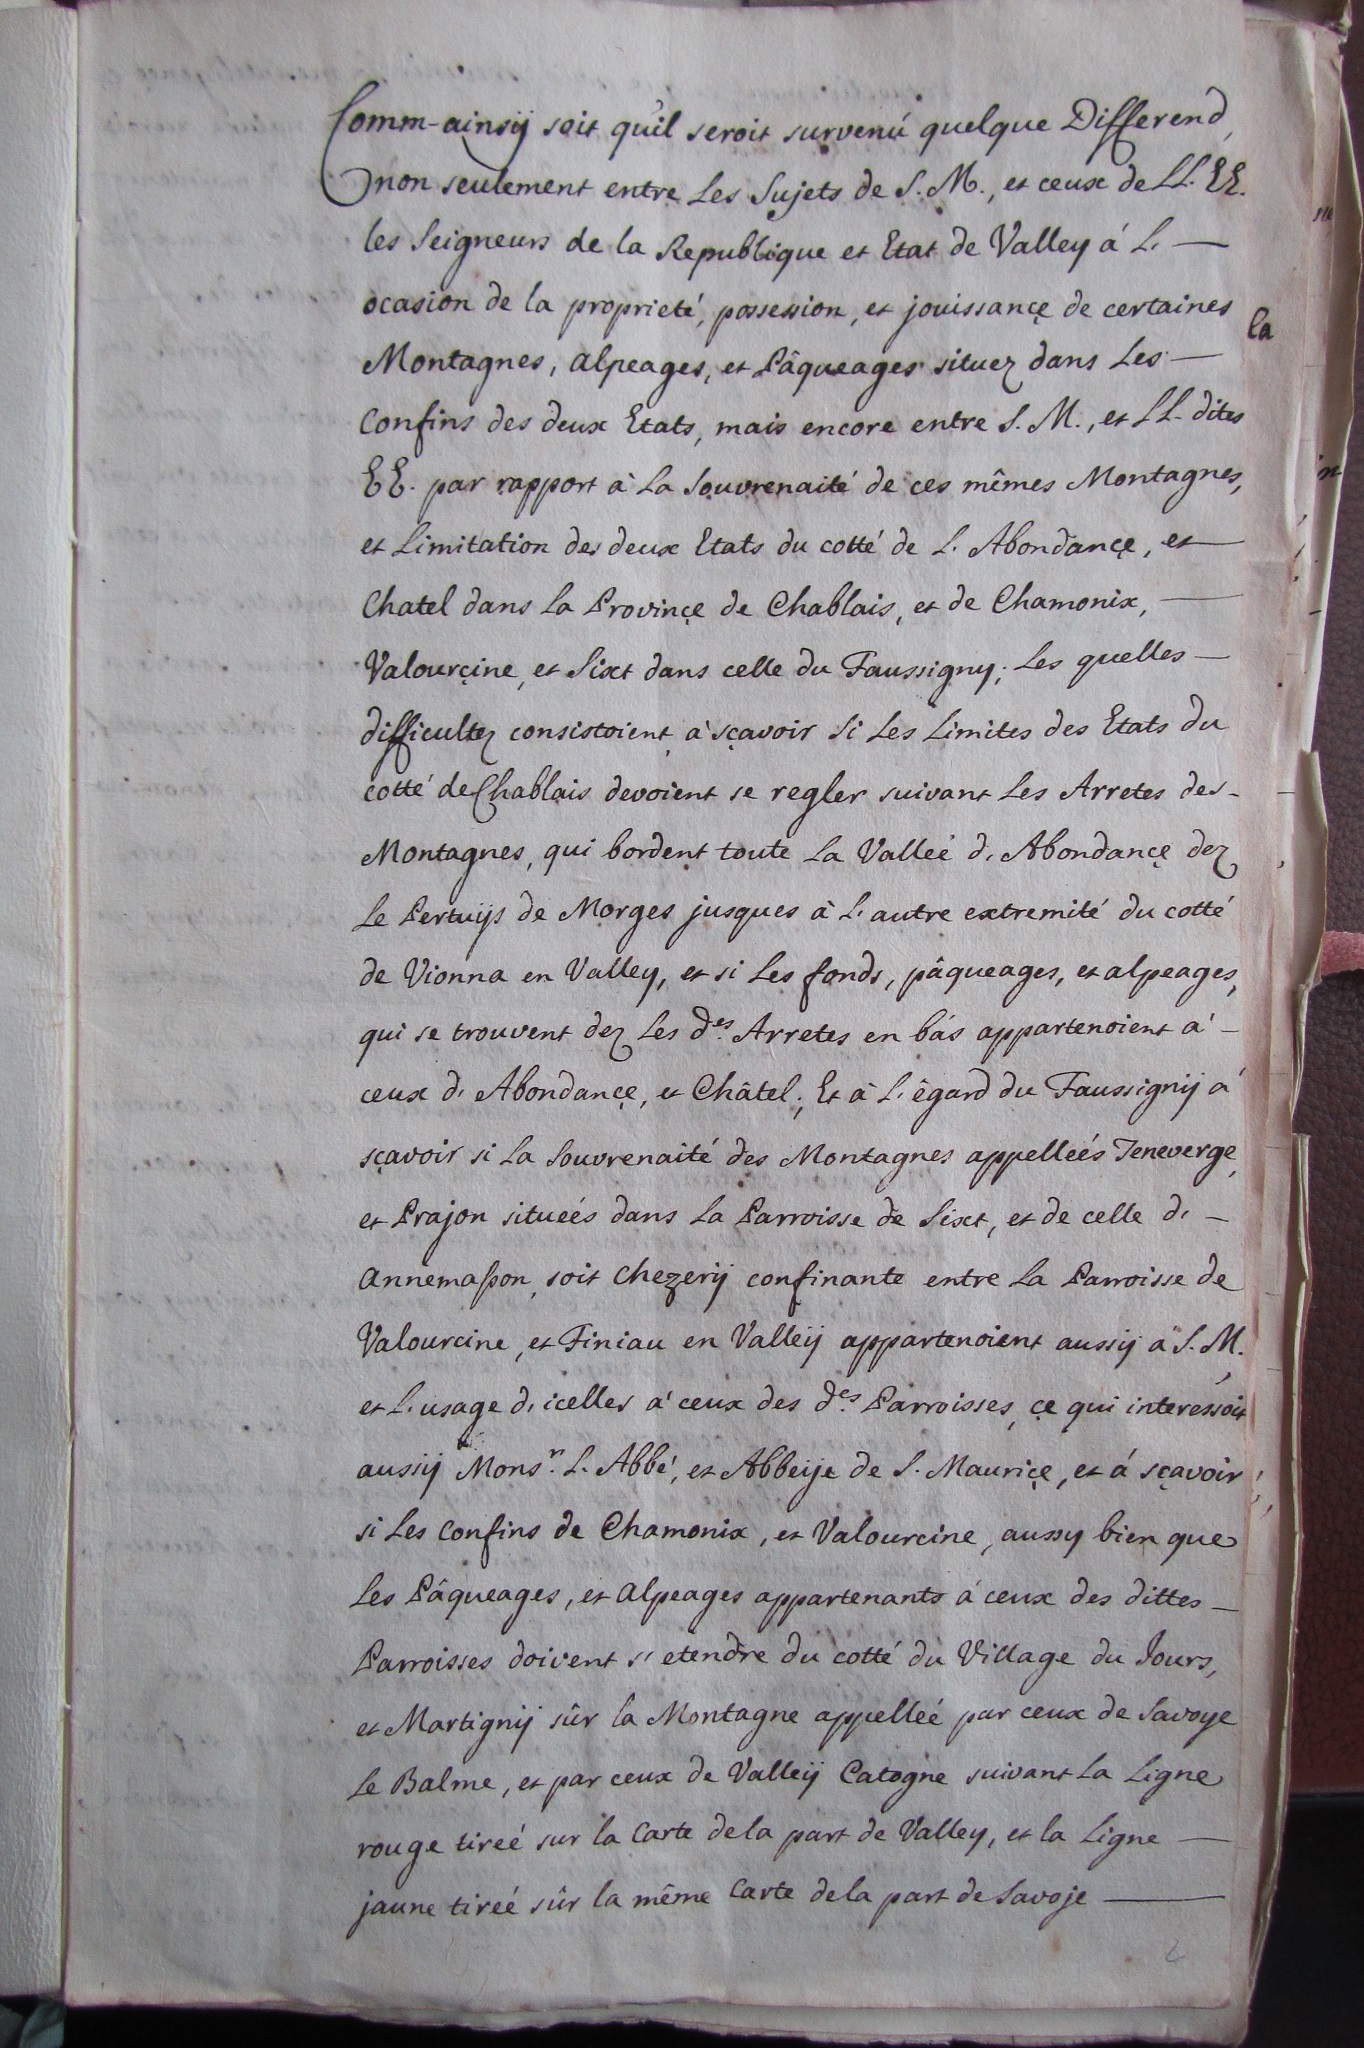 Comm-ainsÿ soit qu'il seroit survenú quelque Differend,
non seulement entre Les Sujets de S. M., et ceux de LL. EE.
les Seigneurs de la Republique et Etat de Valley á L'
ocasion de la proprieté, possession, et jouissançe de certaines
la
Montagnes, alpeages, et Pâqueages situez dans Les
Confins des deux Etats, mais encore entre S. M., et LL. dites
EE. par rapport à La Souvrenaité de ces mêmes Montagnes,
et Limitation des deux Etats du cotté de L'Abondançe, et
Chatel dans La Provinçe de Chablais, et de Chamonix,
Valourçine, et Sixt dans celle du Faussigny; Les quelles
difficultez consistoient à sçavoir si Les Limites des Etats du
cotté de Chablais devoient se regler suivant Les Arretes des
Montagnes, qui bordent toute La Valleé d'Abondançe dez
Le Pertuÿs de Morges jusques à L'autre extremité du cotté
de Vionna en Valley, et si Les fonds, pâqueages, et alpeages,
qui se trouvent dez Les d.es Arretes en bás appartenoient á
ceux d'Abondançe, et Châtel; Et à L'êgard du Faussignÿ á
sçavoir si La Souvrenaité des Montagnes appelleés Teneverge,
et Prajon situeés dans La Parroisse de Sixt, et de celle d'
annemaßon, soit Chezerÿ confinante entre La Parroisse de
Valourcine, et Finiau en Valleÿ appartenoient aussÿ á S. M.
et L'usage d'icelles á ceux des d.es Parroisses, çe qui interéssoit
aussÿ Mons.r L'Abbé, et Abbeÿe de S. Mauriçe, et á sçavoir
si Les Confins de Chamonix, et Valourcine, aussy bien que
Les Pâqueages, et alpeages appartenants á ceux des dittes
Parroisses doivent s'etendre du cotté du Village du Jours,
et Martignÿ sûr la Montagne appelleé par ceux de Savoye
Le Balme, et par ceux de Valleÿ Catogne suivant La Ligne
rouge tireé sur la Carte dela part de Valley, et la Ligne
jaune tireé sûr la même Carte dela part de Savoje
2